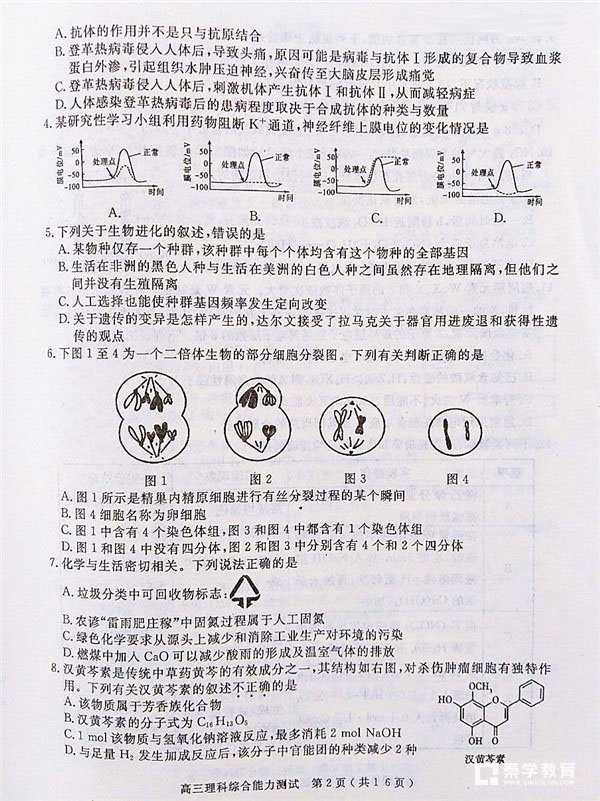 A.抗体的作用并不是只与抗原结合
B.登革热病毒侵入人体后,导致头痛,原因可能是病毒与抗体Ⅰ形成的复合物导致血浆
蛋白外渗,引起组织水肿压迫神经,兴奋传至大脑皮层形成痛觉
C.登革热病毒侵入人体后,刺激机体产生抗体Ⅰ和抗体Ⅱ,从而减轻病症
D.人体感染登革热病毒后的患病程度取决于合成抗体的种类与数量
4.某研究性学习小组利用药物阻断K⁺通道,神经纤维上膜电位的变化情况是
膜电位/mV 50 0 -50 -100 处理点 正常 时间
膜电位/mV 50 0 -50 -100 处理点 正常 时间
膜电位/mV 50 0 -50 -100 处理点 正常 时间
膜电位/mV 50 0 -50 -100 处理点 正常 时间
A. B. C. D.
5.下列关于生物进化的叙述,错误的是
A.某物种仅存一个种群,该种群中每个个体均含有这个物种的全部基因
B.生活在非洲的黑色人种与生活在美洲的白色人种之间虽然存在地理隔离,但他们之
间并没有生殖隔离
C.人工选择也能使种群基因频率发生定向改变
D.关于遗传的变异是怎样产生的,达尔文接受了拉马克关于器官用进废退和获得性遗
传的观点
6.下图1至4为一个二倍体生物的部分细胞分裂图。下列有关判断正确的是
图1 图2 图3 图4
A.图1所示是精巢内精原细胞进行有丝分裂过程的某个瞬间
B.图4细胞名称为卵细胞
C.图1中含有4个染色体组,图3和图4中都含有1个染色体组
D.图1和图4中没有四分体,图2和图3中分别含有4个和2个四分体
7.化学与生活密切相关。下列说法正确的是
A.垃圾分类中可回收物标志:
B.农谚“雷雨肥庄稼”中固氮过程属于人工固氮
C.绿色化学要求从源头上减少和消除工业生产对环境的污染
D.燃煤中加入CaO可以减少酸雨的形成及温室气体的排放
8.汉黄芩素是传统中草药黄芩的有效成分之一,其结构如右图,对杀伤肿瘤细胞有独特作
用。下列有关汉黄芩素的叙述不正确的是
A.该物质属于芳香族化合物
B.汉黄芩素的分子式为C₁₆H₁₂O₅
C.1 mol该物质与氢氧化钠溶液反应,最多消耗2 mol NaOH
D.与足量H₂发生加成反应后,该分子中官能团的种类减少2种
OCH₃
HO
O
OH O
汉黄芩素
高三理科综合能力测试 第2页(共16页)
秦学教育